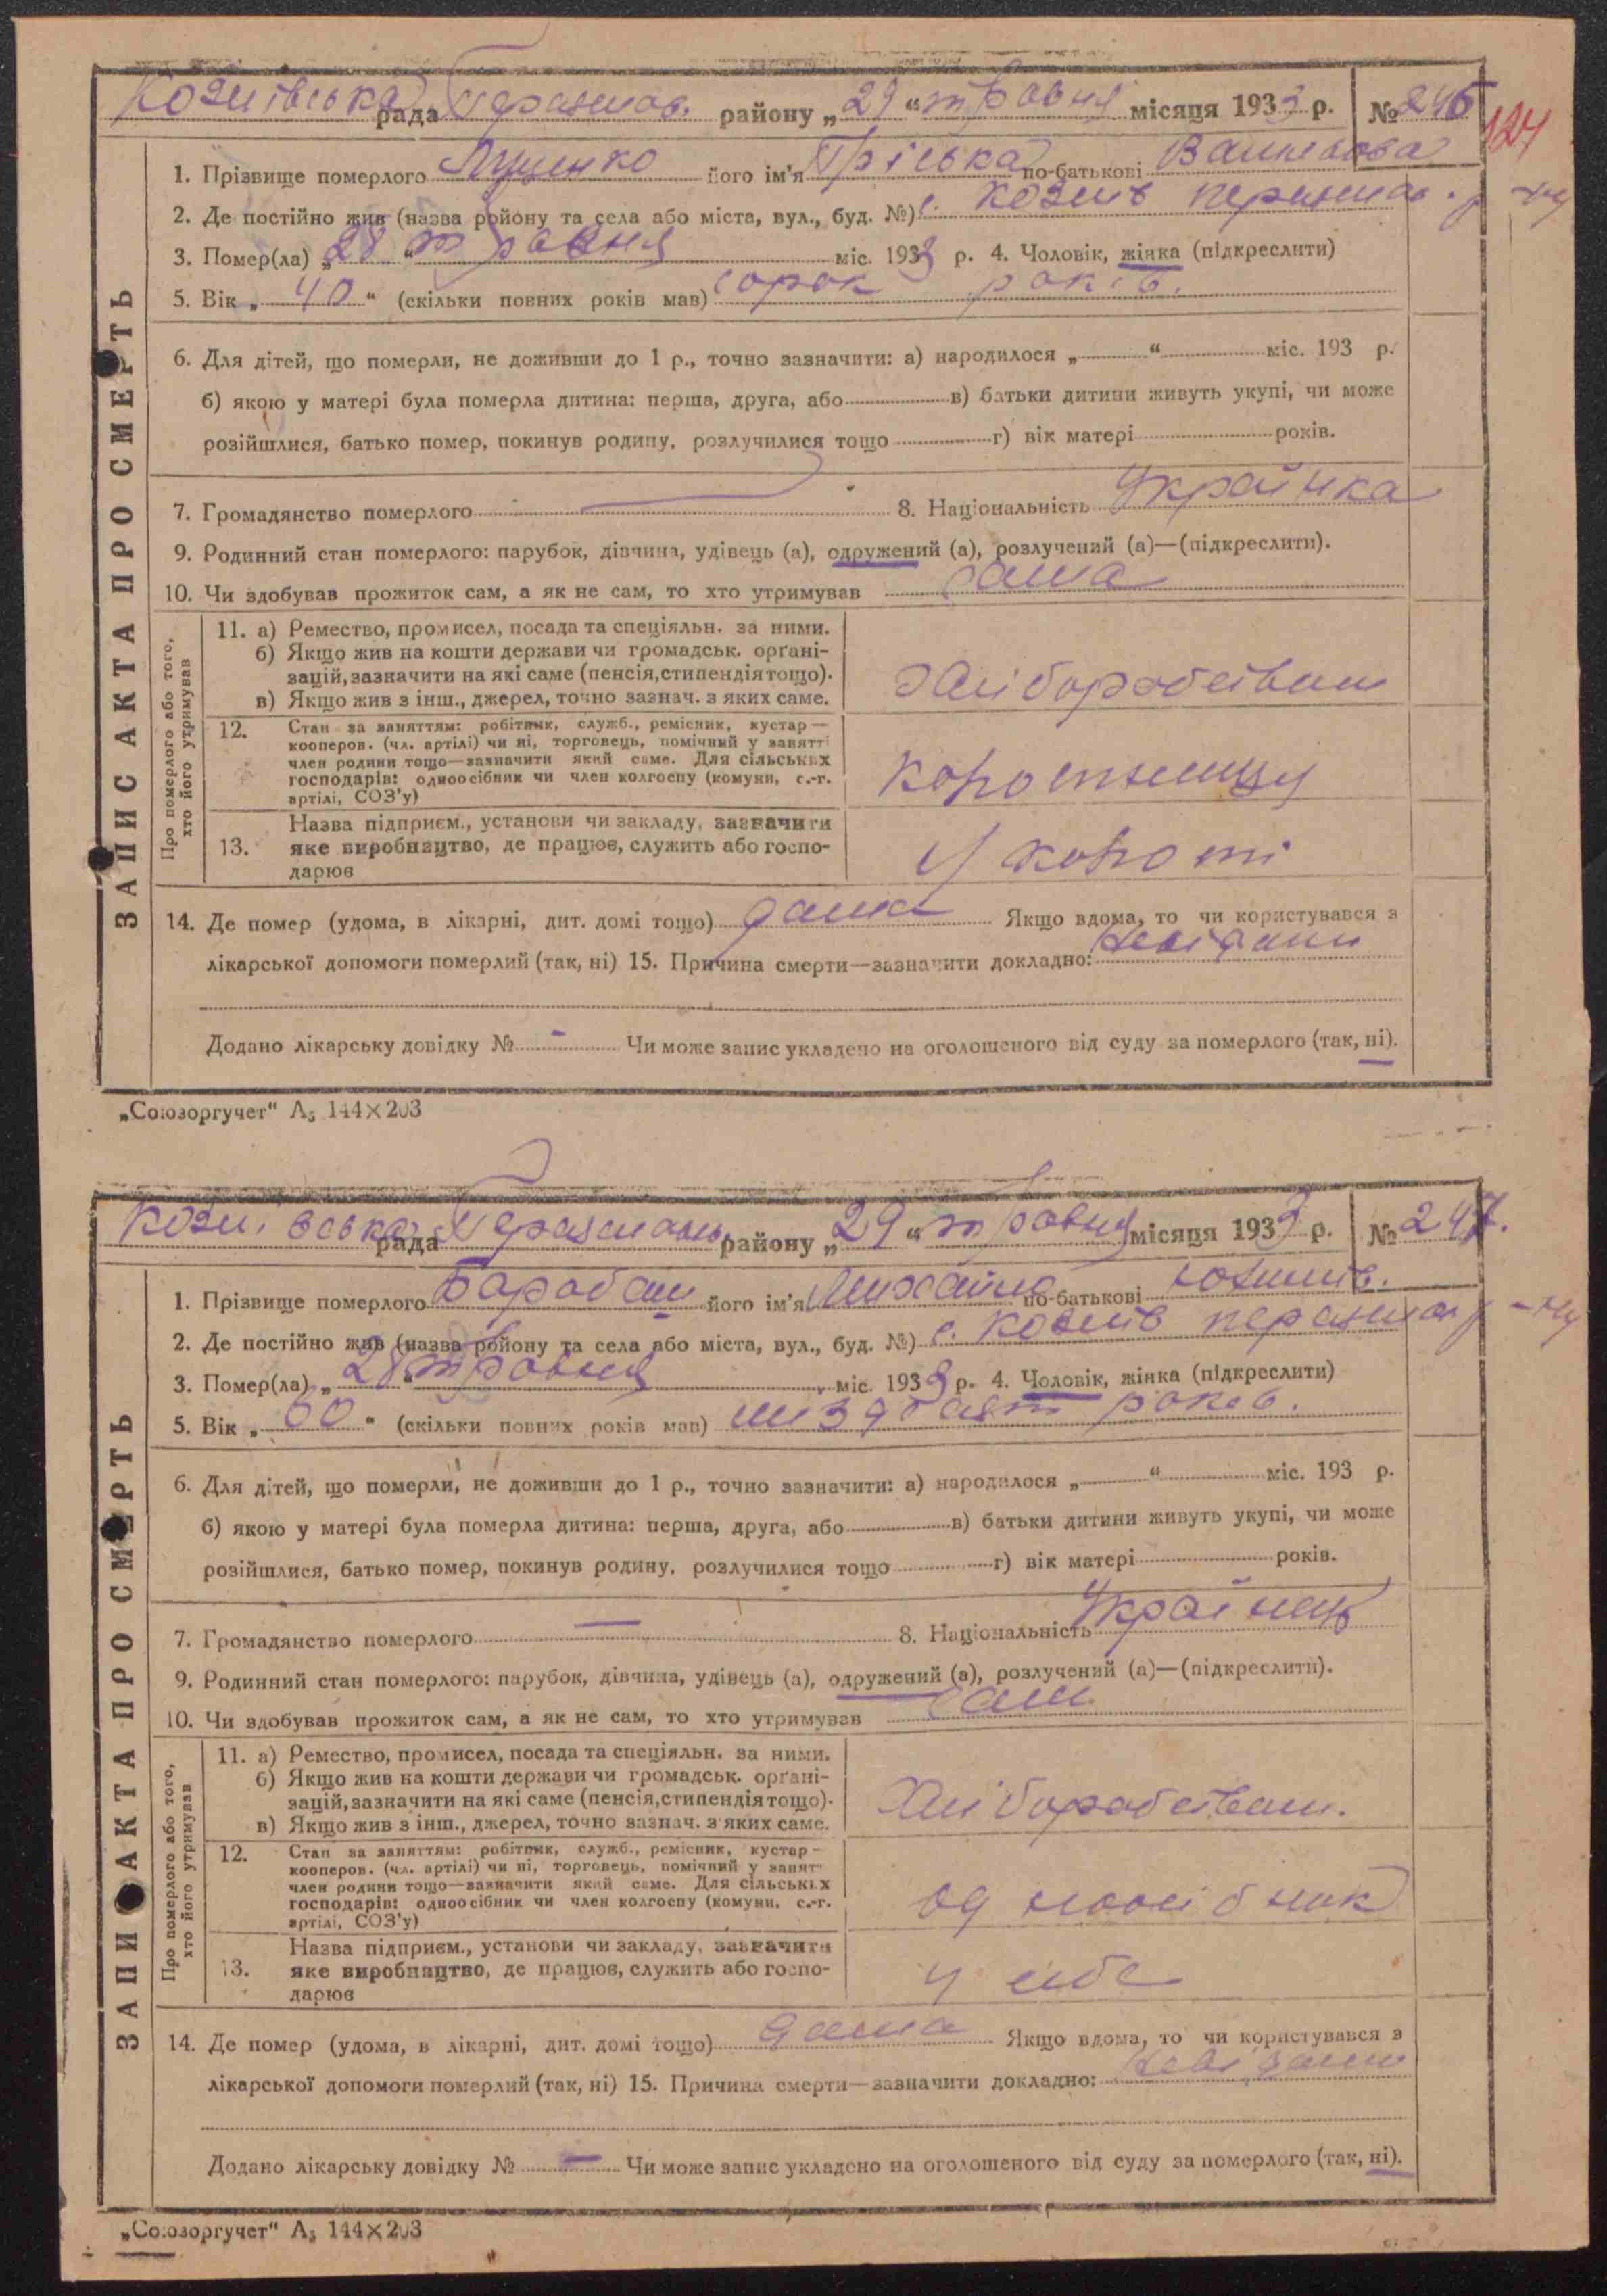 Козлівська рада Переяслав. району „29“ травня місяця 1933 р. № 246
124
1. Прізвище померлого Луценко його ім'я Пріська по-батькові
2. Де постійно жив (назва району та села або міста, вул., буд. №) с. Козлів переяслав. р-ну
3. Помер(ла) „28“ травня міс. 1933 р. 4. Чоловік, жінка (підкреслити)
5. Вік „40“ (скільки повних років мав) сорок років.
6. Для дітей, що померли, не доживши до 1 р., точно зазначити: а) народилося „ “ міс. 193 р.
б) якою у матері була померла дитина: перша, друга, або в) батьки дитини живуть укупі, чи може
розійшлися, батько помер, покинув родину, розлучилися тощо г) вік матері років.
7. Громадянство померлого — 8. Національність Українка
9. Родинний стан померлого: парубок, дівчина, удівець (а), одружений (а), розлучений (а)—(підкреслити).
10. Чи здобував прожиток сам, а як не сам, то хто утримував сама
ЗАПИС АКТА ПРО СМЕРТЬ
Про померлого або того,
хто його утримував
11. а) Ремество, промисел, посада та спеціяльн. за ними.
б) Якщо жив на кошти держави чи громадськ. орґані-
зацій, зазначити на які саме (пенсія, стипендія тощо).
в) Якщо жив з інш., джерел, точно зазнач. з яких саме.
хліборобством
12. Стан за заняттям: робітник, служб., ремісник, кустар—
кооперов. (чл. артілі) чи ні, торговець, помічний у занятті
член родини тощо—зазначити який саме. Для сільських
господарів: одноосібник чи член колгоспу (комуни, с.-г.
артілі, СОЗ'у)
13. Назва підприєм., установи чи закладу, зазначити
яке виробництво, де працює, служить або госпо-
дарює
14. Де помер (удома, в лікарні, дит. домі тощо) дома Якщо вдома, то чи користувався з
лікарської допомоги померлий (так, ні) 15. Причина смерти—зазначити докладно: невідомо
Додано лікарську довідку № — Чи може запис укладено на оголошеного від суду за померлого (так, ні).
„Союзоргучет“ А5 144×203
Козлівська рада Переяславь. району „29“ травня місяця 1933 р. № 247.
1. Прізвище померлого Барабаш його ім'я Михайло по-батькові
2. Де постійно жив (назва району та села або міста, вул., буд. №) с. Козлів переяслав р-ну
3. Помер(ла) „28“ травня міс. 1933 р. 4. Чоловік, жінка (підкреслити)
5. Вік „60“ (скільки повних років мав) шіздесят років.
6. Для дітей, що померли, не доживши до 1 р., точно зазначити: а) народилося „ “ міс. 193 р.
б) якою у матері була померла дитина: перша, друга, або в) батьки дитини живуть укупі, чи може
розійшлися, батько помер, покинув родину, розлучилися тощо г) вік матері років.
7. Громадянство померлого — 8. Національність Українець
9. Родинний стан померлого: парубок, дівчина, удівець (а), одружений (а), розлучений (а)—(підкреслити).
10. Чи здобував прожиток сам, а як не сам, то хто утримував сам
ЗАПИС АКТА ПРО СМЕРТЬ
Про померлого або того,
хто його утримував
11. а) Ремество, промисел, посада та спеціяльн. за ними.
б) Якщо жив на кошти держави чи громадськ. орґані-
зацій, зазначити на які саме (пенсія, стипендія тощо).
в) Якщо жив з інш., джерел, точно зазнач. з яких саме.
Хліборобством.
12. Стан за заняттям: робітник, служб., ремісник, кустар—
кооперов. (чл. артілі) чи ні, торговець, помічний у занятті
член родини тощо—зазначити який саме. Для сільських
господарів: одноосібник чи член колгоспу (комуни, с.-г.
артілі, СОЗ'у)
одноосібник
13. Назва підприєм., установи чи закладу, зазначити
яке виробництво, де працює, служить або госпо-
дарює
у себе
14. Де помер (удома, в лікарні, дит. домі тощо) дома Якщо вдома, то чи користувався з
лікарської допомоги померлий (так, ні) 15. Причина смерти—зазначити докладно: невідомо
Додано лікарську довідку № — Чи може запис укладено на оголошеного від суду за померлого (так, ні).
„Союзоргучет“ А5 144×203